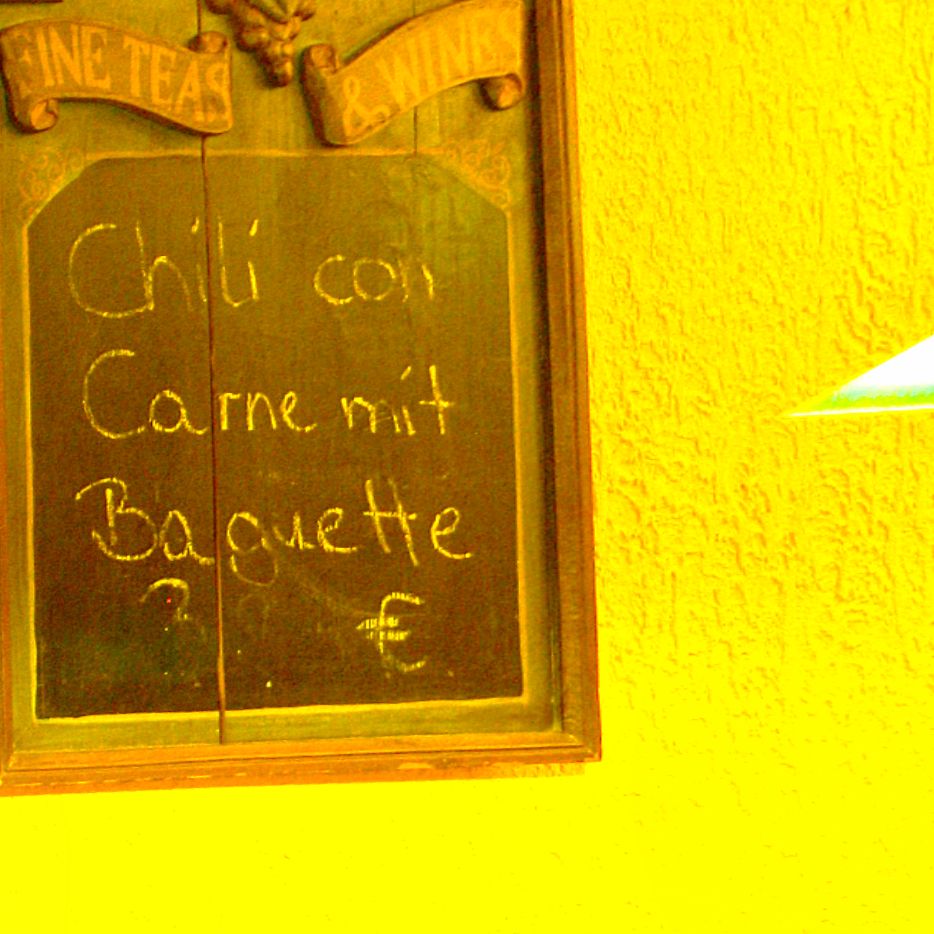 FINE TEAS & WINES
Chili con
Carne mit
Baguette
€